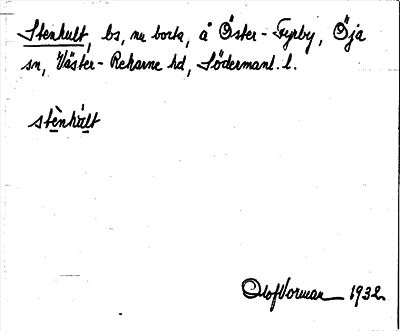 Stenhult, bs, nu borta, å Öster-Fyrby, Öja
sn, Väster-Rekarne hd, Södermanl. l.
stènhúlt
Olof Vorman 1932